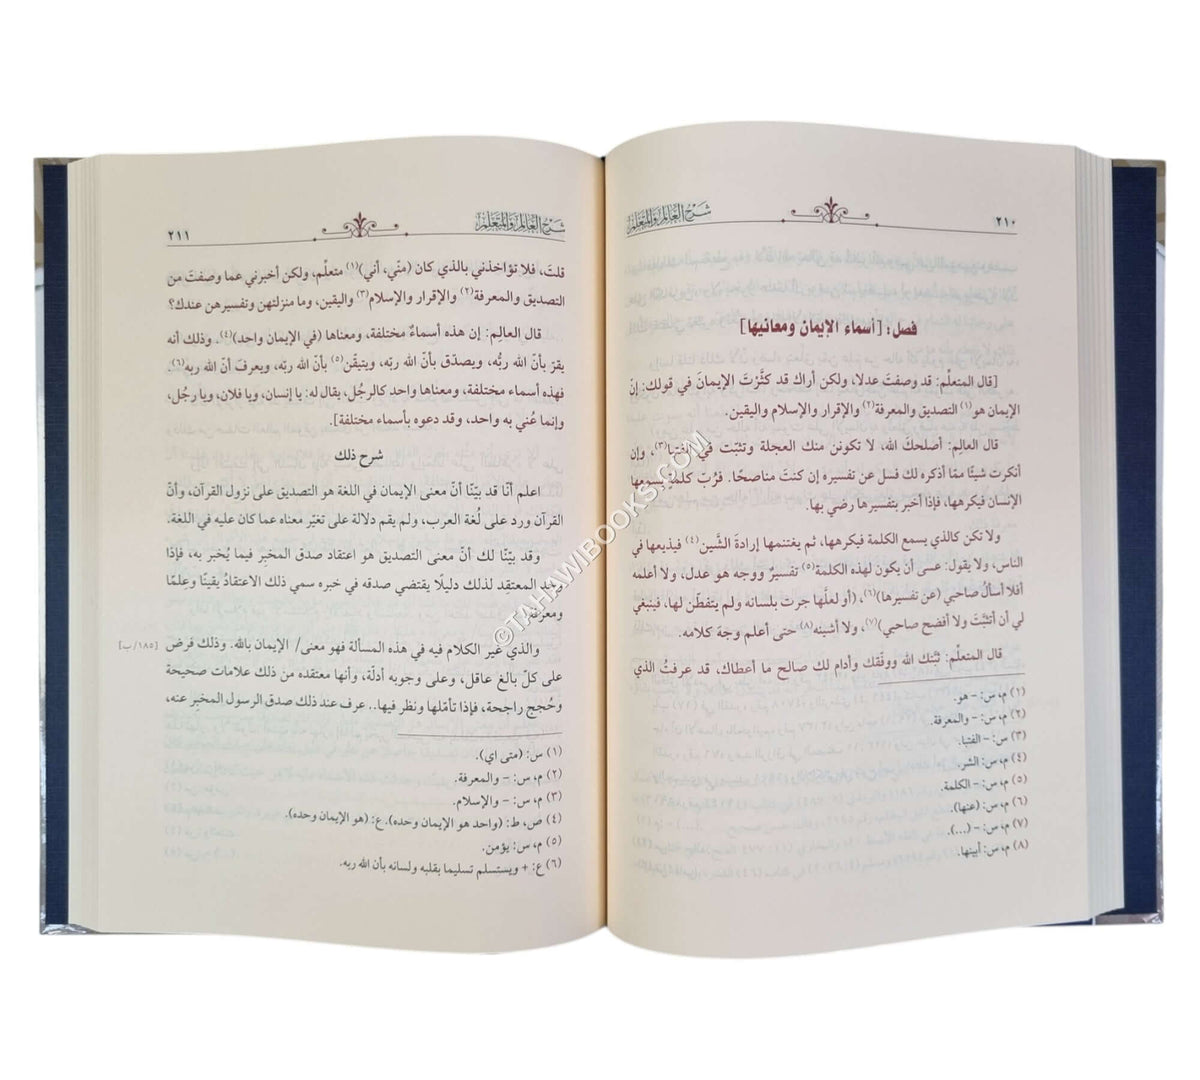 ٢١٠ شرح العالم والمتعلم
فصل: [أسماء الإيمان ومعانيها]
[قال المتعلِّم: قد وصفتَ عدلا، ولكن أراك قد كثَّرْتَ الإيمانَ في قولك: إنّ
الإيمان هو(١) التصديق والمعرفة(٢) والإقرار والإسلام واليقين.
قال العالِم: أصلحكَ الله، لا تكونن منك العجلة وتثبّت في الفتيا(٣)، وإن
أنكرت شيئًا ممّا أذكره لك فسل عن تفسيره إن كنتَ مناصحًا. فرُبّ كلمة يسمعها
الإنسان فيكرهها، فإذا أخبر بتفسيرها رضي بها.
ولا تكن كالذي يسمع الكلمة فيكرهها، ثم يغتنمها إرادةَ الشَّين(٤) فيذيعها في
الناس، ولا يقول: عسى أن يكون لهذه الكلمة(٥) تفسيرٌ ووجه هو عدل، ولا أعلمه
أفلا أسألُ صاحبي (عن تفسيرها)(٦)، (أو لعلّها جرت بلسانه ولم يتفطّن لها، فينبغي
لي أن أتثبَّتَ ولا أفضح صاحبي)(٧)، ولا أشينه(٨) حتى أعلم وجهَ كلامه.
قال المتعلِّم: ثبَّتك الله ووفّقك وأدام لك صالح ما أعطاك، قد عرفتُ الذي
(١) م، س: – هو.
(٢) م، س: – والمعرفة.
(٣) س: – الفتيا.
(٤) م، س: الشر.
(٥) م، س: – الكلمة.
(٦) م، س: (عنها).
(٧) م، س: – (...).
(٨) م، س: أبينها.
شرح العالم والمتعلم ٢١١
قلتَ، فلا تؤاخذني بالذي كان (منّي، أني)(١) متعلِّم، ولكن أخبرني عما وصفتَ من
التصديق والمعرفة(٢) والإقرار والإسلام(٣) واليقين، وما منزلتهن وتفسيرهن عندك؟
قال العالِم: إن هذه أسماءٌ مختلفة، ومعناها (في الإيمان واحد)(٤). وذلك أنه
يقرّ بأنّ الله ربُّه، ويصدّق بأنّ الله ربّه، ويتيقّن(٥) بأنّ الله ربّه، ويعرفَ أنّ الله ربه(٦).
فهذه أسماء مختلفة، ومعناها واحد كالرجُل، يقال له: يا إنسان، ويا فلان، ويا رجُل،
وإنما عُني به واحد، وقد دعوه بأسماء مختلفة].
شرح ذلك
اعلم أنّا قد بيّنّا أنّ معنى الإيمان في اللغة هو التصديق على نزول القرآن، وأنّ
القرآن ورد على لُغة العرب، ولم يقم دلالة على تغيّر معناه عما كان عليه في اللغة.
وقد بيّنّا لك أنّ معنى التصديق هو اعتقاد صدق المخبَر فيما يُخبر به، فإذا
وجد المعتقِد لذلك دليلًا يقتضي صدقه في خبره سمي ذلك الاعتقادُ يقينًا وعِلمًا
ومعرفة.
والذي غير الكلام فيه في هذه المسألة فهو معنى/ الإيمان بالله. وذلك فرض [١٨٥/ب]
على كلّ بالغ عاقل، وعلى وجوبه أدلّة، وأنها معتقده من ذلك علامات صحيحة
وحُجج راجحة، فإذا تأمّلها ونظر فيها.. عرف عند ذلك صدق الرسول المخبر عنه،
(١) س: (متى اي).
(٢) م، س: – والمعرفة.
(٣) م، س: – والإسلام.
(٤) ص، ط: (واحد هو الإيمان وحده). ع: (هو الإيمان وحده).
(٥) م، س: يؤمن.
(٦) ع: + ويستسلم تسليما بقلبه ولسانه بأن الله ربه.
©TAHAWIBOOKS.COM